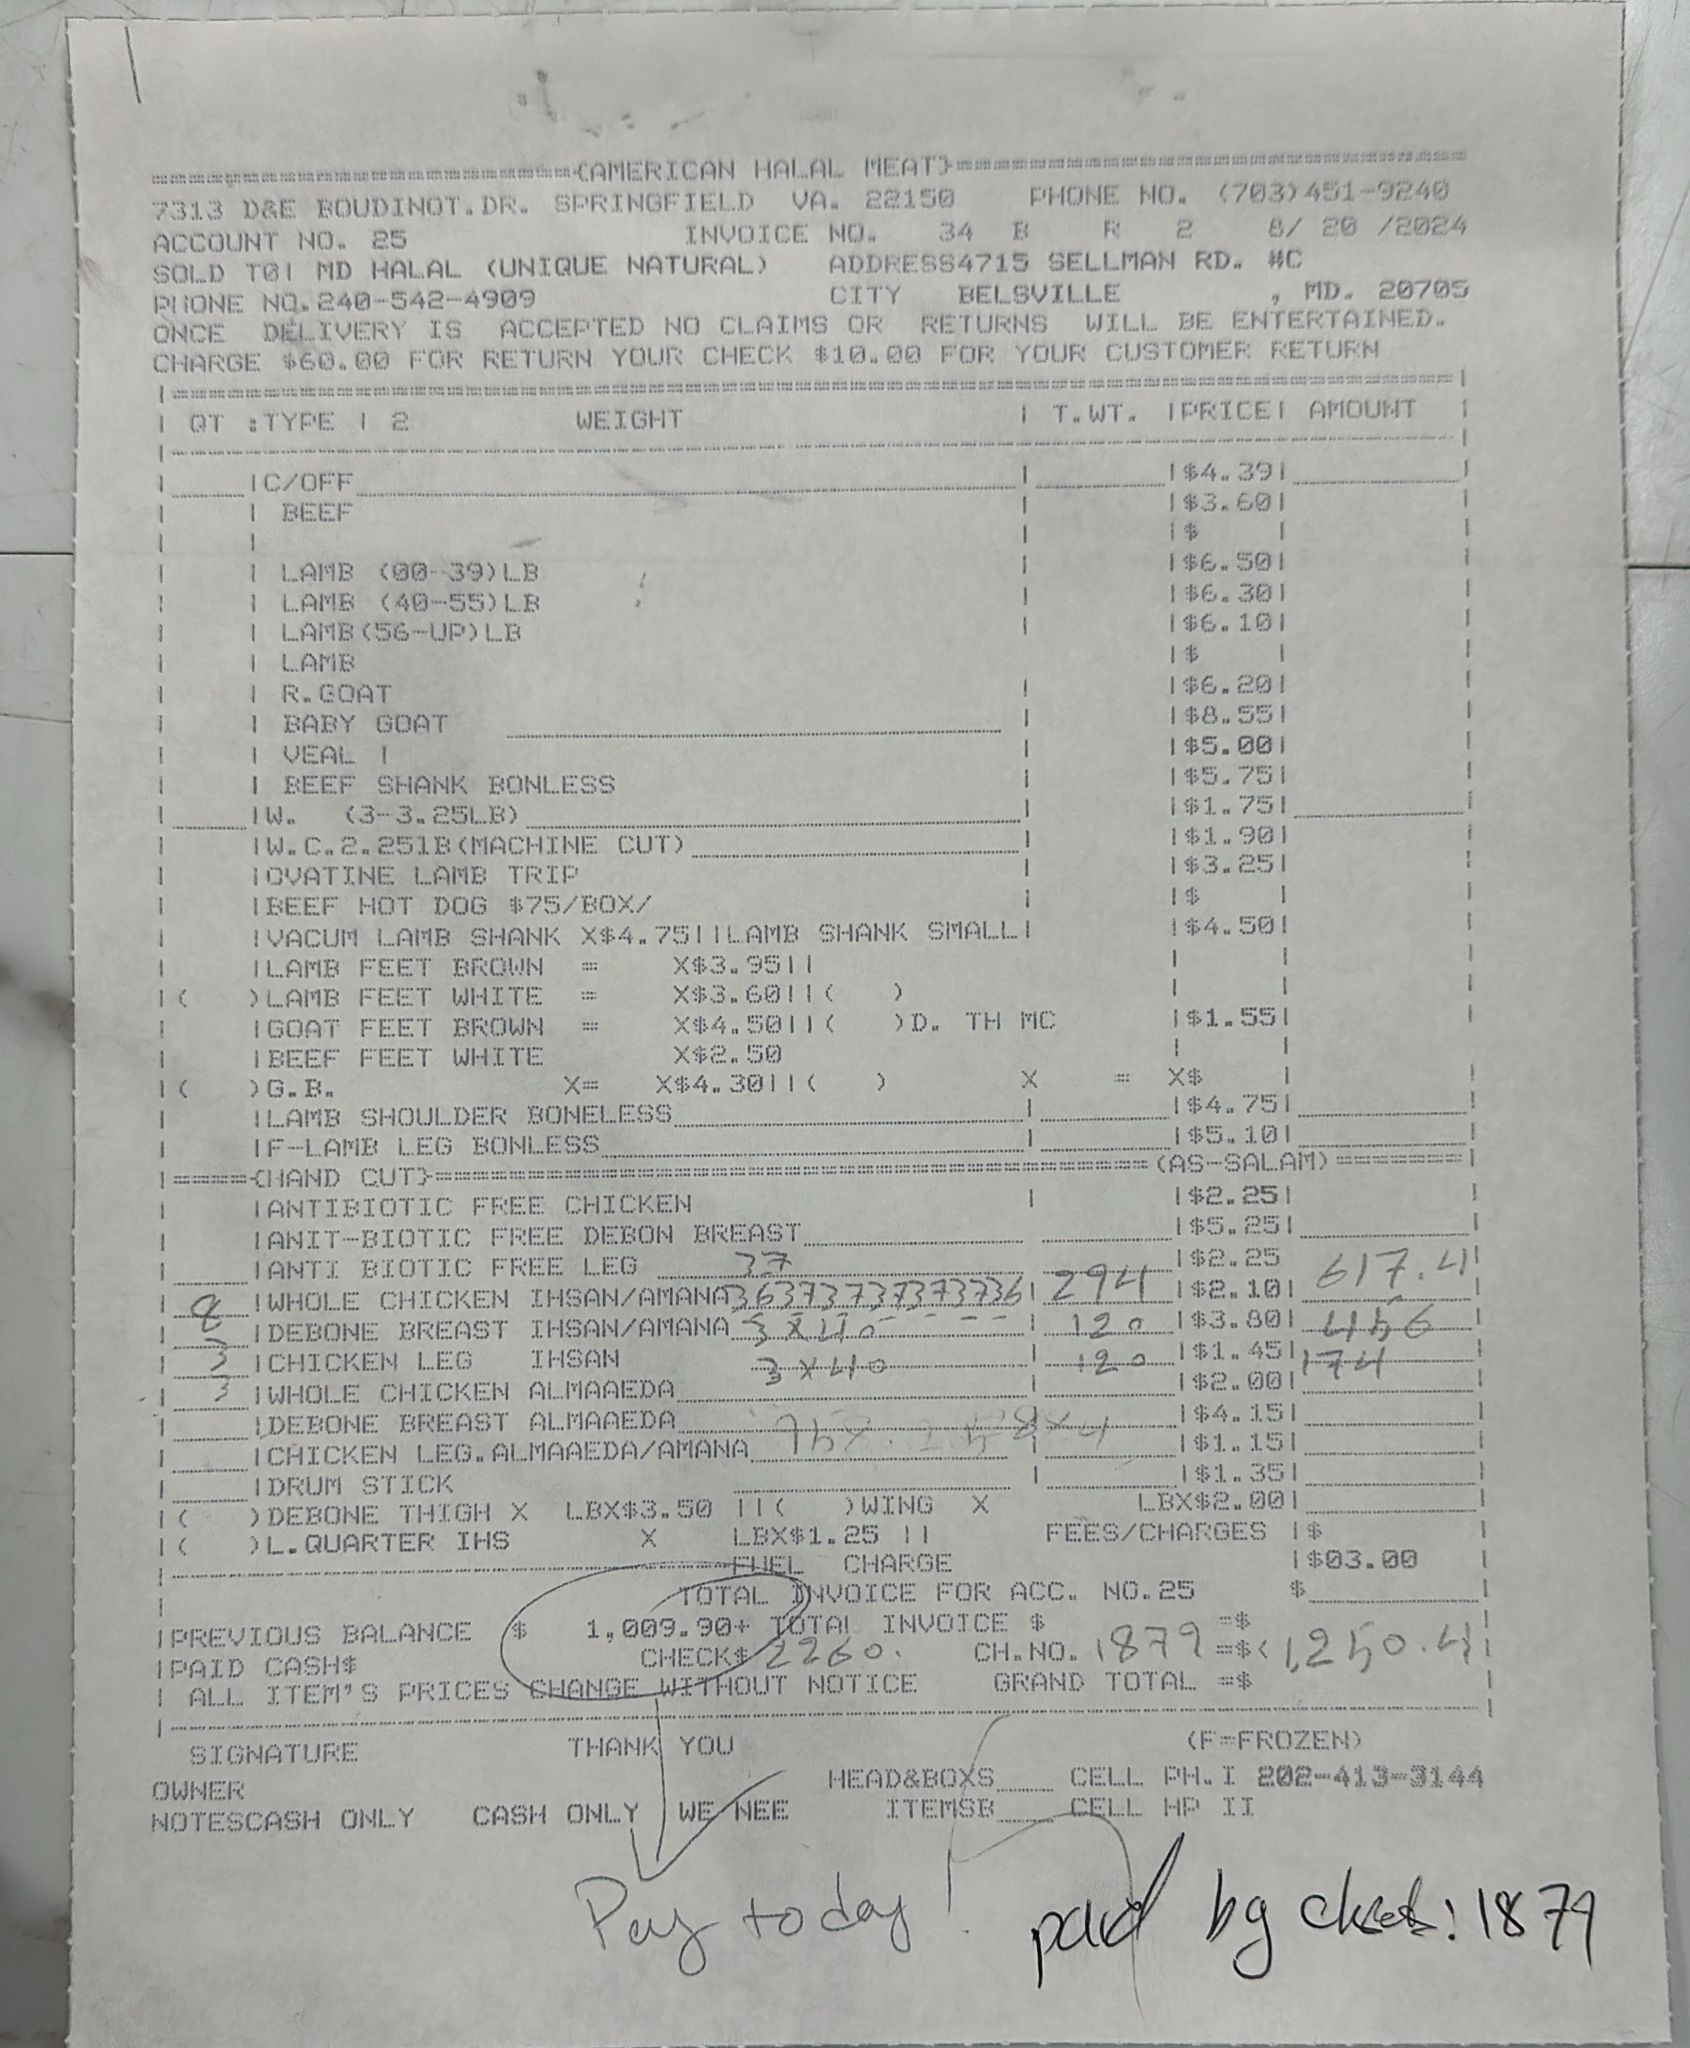 {AMERICAN HALAL MEAT}
7313 D&E BOUDINOT.DR. SPRINGFIELD VA. 22150 PHONE NO. (703)451-9240
ACCOUNT NO. 25 INVOICE NO. 34 B R 2 8/ 20 /2024
SOLD TO| MD HALAL (UNIQUE NATURAL) ADDRESS4715 SELLMAN RD. #C
PHONE NO.240-542-4909 CITY BELSVILLE , MD. 20705
ONCE DELIVERY IS ACCEPTED NO CLAIMS OR RETURNS WILL BE ENTERTAINED.
CHARGE $60.00 FOR RETURN YOUR CHECK $10.00 FOR YOUR CUSTOMER RETURN
| QT :TYPE | 2 WEIGHT | T.WT. |PRICE| AMOUNT |
|C/OFF |$4.39|
| BEEF |$3.60|
|$ |
| LAMB (00-39)LB |$6.50|
| LAMB (40-55)LB |$6.30|
| LAMB(56-UP)LB |$6.10|
| LAMB |$ |
| R.GOAT |$6.20|
| BABY GOAT |$8.55|
| VEAL | |$5.00|
| BEEF SHANK BONLESS |$5.75|
|W. (3-3.25LB) |$1.75|
|W.C.2.251B(MACHINE CUT) |$1.90|
|OVATINE LAMB TRIP |$3.25|
|BEEF HOT DOG $75/BOX/ |$ |
|VACUM LAMB SHANK X$4.75||LAMB SHANK SMALL| |$4.50|
|LAMB FEET BROWN = X$3.95||
|( )LAMB FEET WHITE = X$3.60||( )
|GOAT FEET BROWN = X$4.50||( )D. TH MC |$1.55|
|BEEF FEET WHITE X$2.50
|( )G.B. X= X$4.30||( ) X = X$ |
|LAMB SHOULDER BONELESS |$4.75|
|F-LAMB LEG BONLESS |$5.10|
|====={HAND CUT}=====(AS-SALAM)=======|
|ANTIBIOTIC FREE CHICKEN |$2.25|
|ANIT-BIOTIC FREE DEBON BREAST |$5.25|
|ANTI BIOTIC FREE LEG 37 |$2.25
8 |WHOLE CHICKEN IHSAN/AMANA 36373737373736 | 294 |$2.10| 617.4
3 |DEBONE BREAST IHSAN/AMANA 3 x 40 | 120 |$3.80| 456
3 |CHICKEN LEG IHSAN 3 x 40 | 120 |$1.45| 174
|WHOLE CHICKEN ALMAAEDA |$2.00|
|DEBONE BREAST ALMAAEDA |$4.15|
|CHICKEN LEG.ALMAAEDA/AMANA |$1.15|
|DRUM STICK |$1.35|
|( )DEBONE THIGH X LBX$3.50 ||( )WING X LBX$2.00|
|( )L.QUARTER IHS X LBX$1.25 || FEES/CHARGES |$
FUEL CHARGE |$03.00
TOTAL INVOICE FOR ACC. NO.25 $
|PREVIOUS BALANCE $ 1,009.90+ TOTAL INVOICE $ =$
|PAID CASH$ CHECK$ 2260. CH.NO. 1879 =$< 1,250.4
| ALL ITEM'S PRICES CHANGE WITHOUT NOTICE GRAND TOTAL =$
SIGNATURE THANK YOU (F=FROZEN)
OWNER HEAD&BOXS CELL PH.I 202-413-3144
NOTESCASH ONLY CASH ONLY WE NEE ITEMSB CELL HP II
Pay today! paid by check: 1879